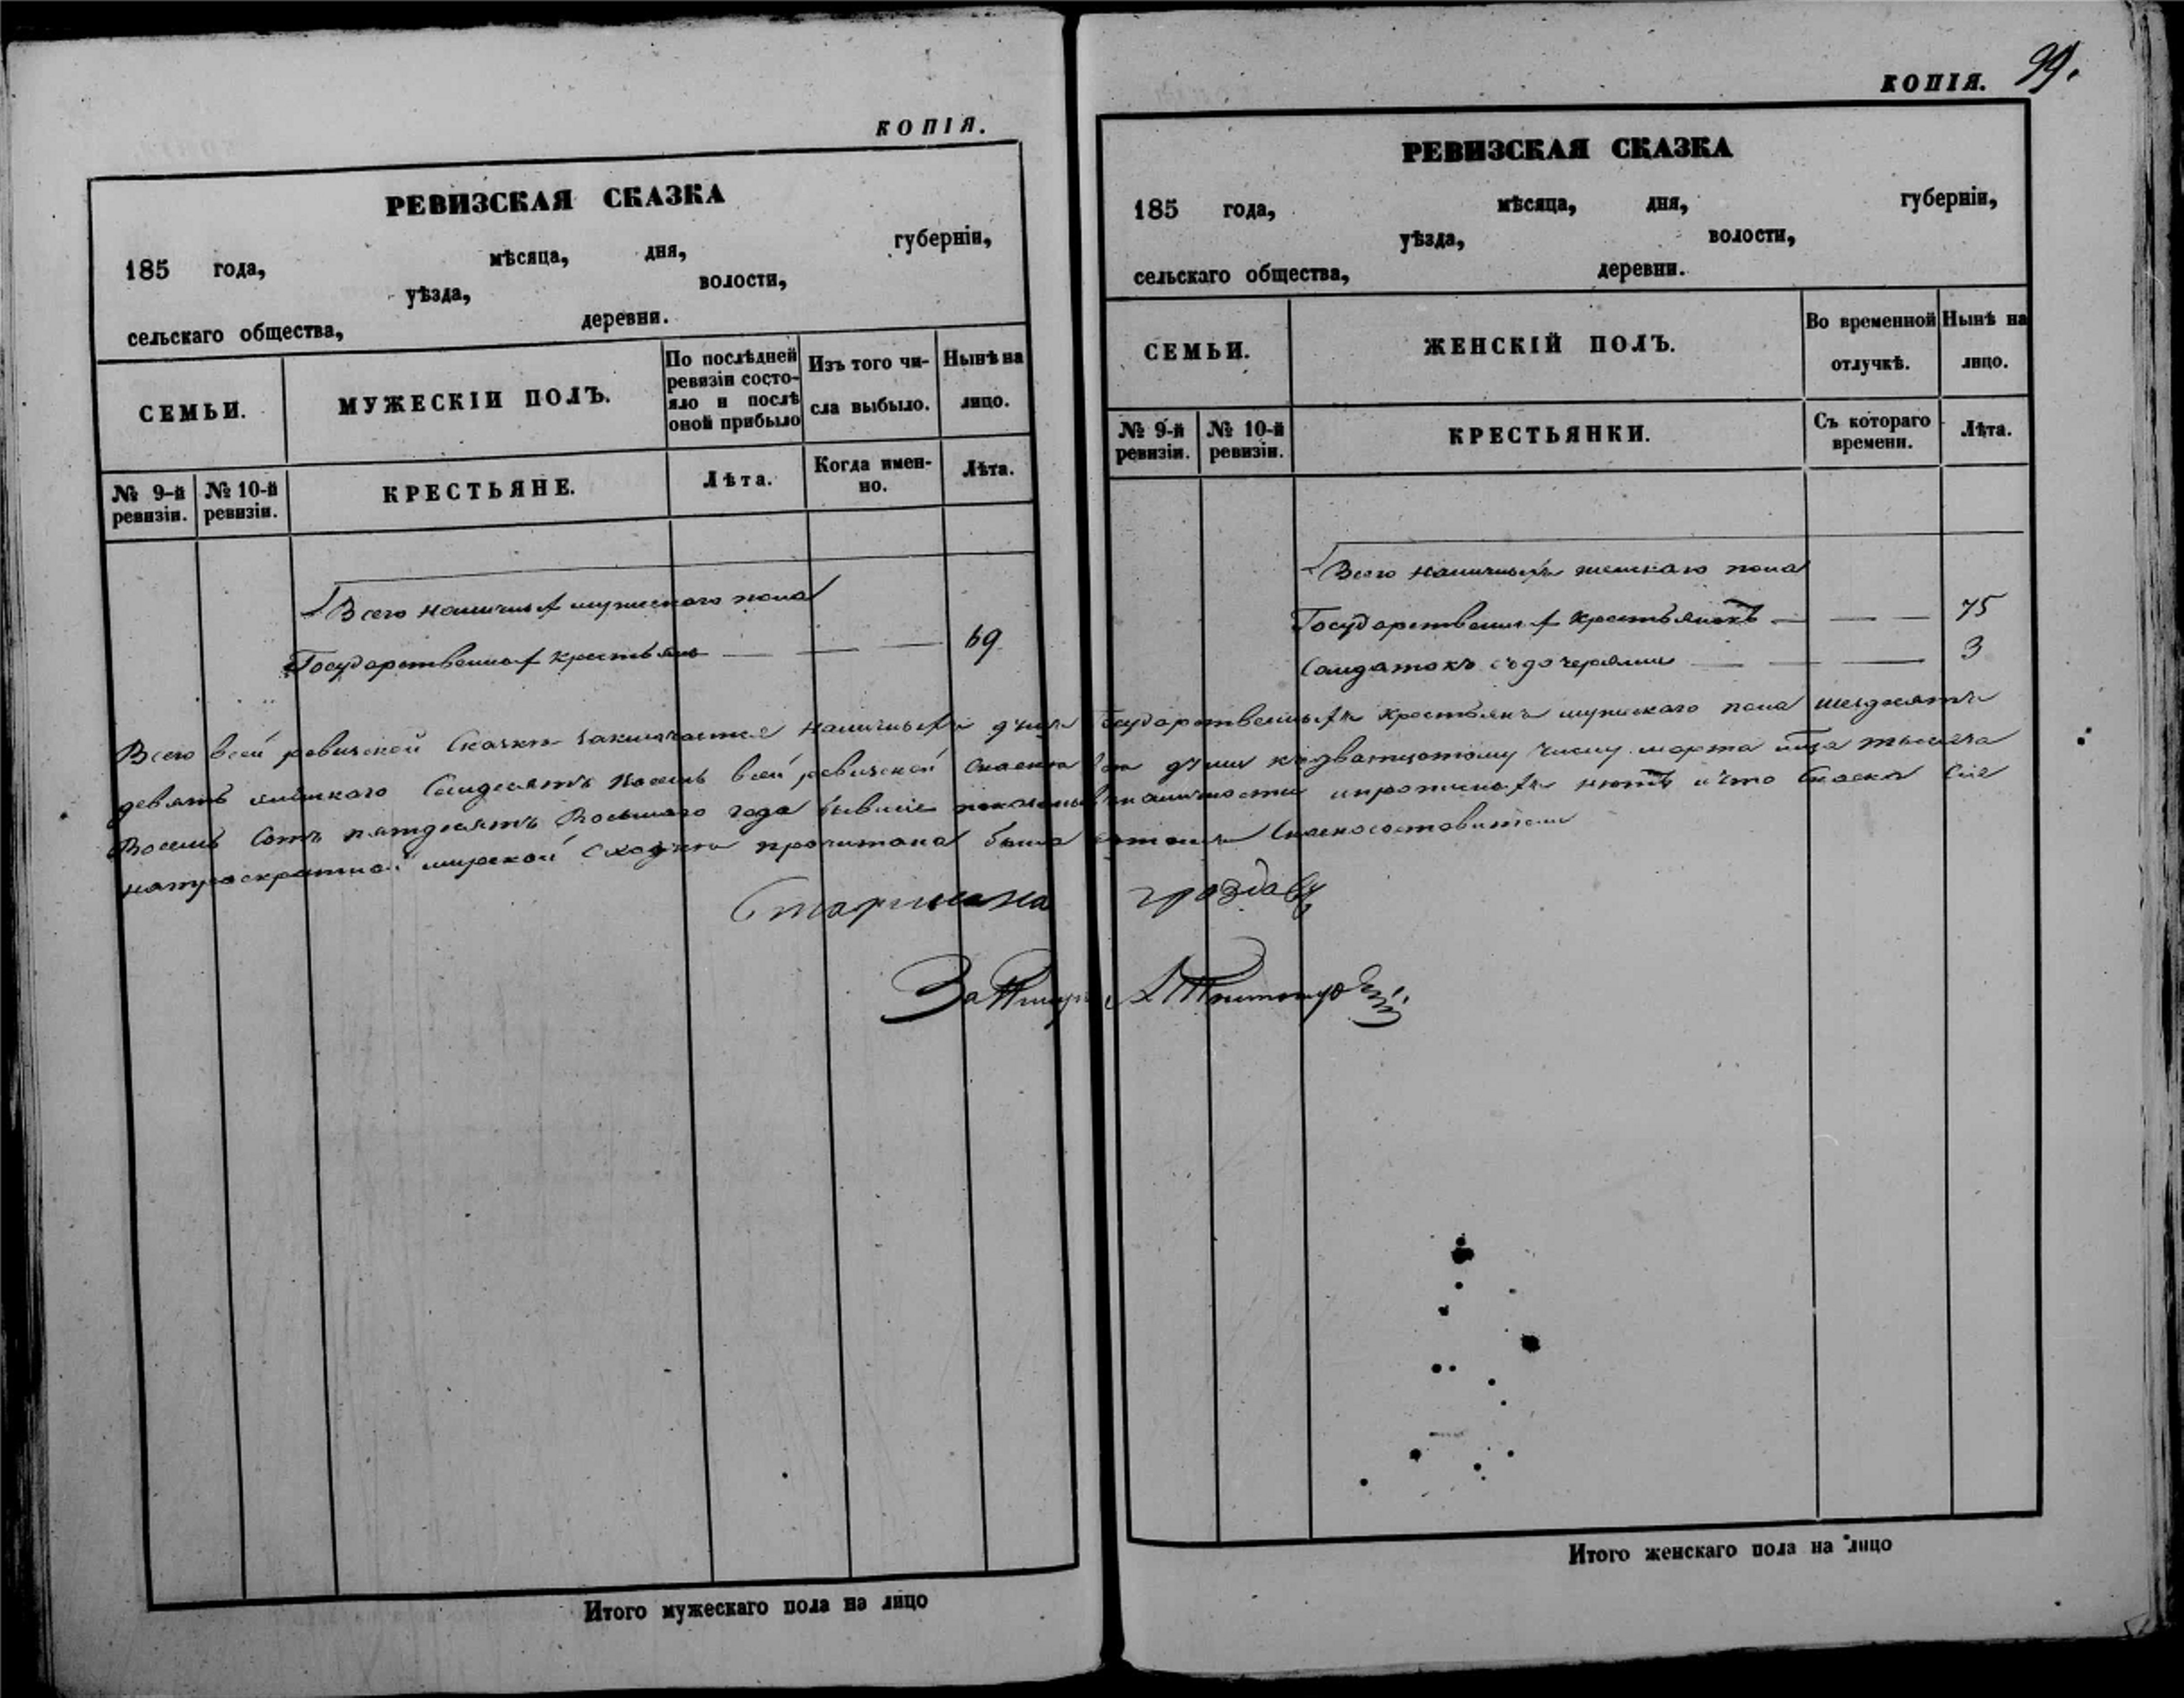 КОПІЯ.
РЕВИЗСКАЯ СКАЗКА
185 года, мѣсяца, дня, губерніи,
уѣзда, волости,
сельскаго общества, деревни.
СЕМЬИ.
МУЖЕСКІЙ ПОЛЪ.
По послѣдней
ревизіи состо-
яло и послѣ
оной прибыло
Изъ того чи-
сла выбыло.
Нынѣ на
лицо.
№ 9-й
ревизіи.
№ 10-й
ревизіи.
КРЕСТЬЯНЕ.
Лѣта.
Когда имен-
но.
Лѣта.
Всего наличныхъ мужескаго пола
Государственныхъ крестьянъ — — — 69
Итого мужескаго пола на лицо
КОПІЯ. 99.
РЕВИЗСКАЯ СКАЗКА
185 года, мѣсяца, дня, губерніи,
уѣзда, волости,
сельскаго общества, деревни.
СЕМЬИ.
ЖЕНСКІЙ ПОЛЪ.
Во временной
отлучкѣ.
Нынѣ на
лицо.
№ 9-й
ревизіи.
№ 10-й
ревизіи.
КРЕСТЬЯНКИ.
Съ котораго
времени.
Лѣта.
Всего наличныхъ женскаго пола
Государственныхъ крестьянокъ — — — 75
Солдатокъ съ дочерями — — — 3
Всего всей ревизской сказки заключается наличныхъ душъ Государственныхъ крестьянъ мужескаго пола шездесятъ
девять женскаго семдесятъ восемь всей ревизской души къ дватцотому числу марта мца тысяча
восемь сотъ пятдесятъ восьмаго года бывшіе наличности нѣтъ и что сія
мирской сходкѣ прочитана была
Старшина
За
Итого женскаго пола на лицо